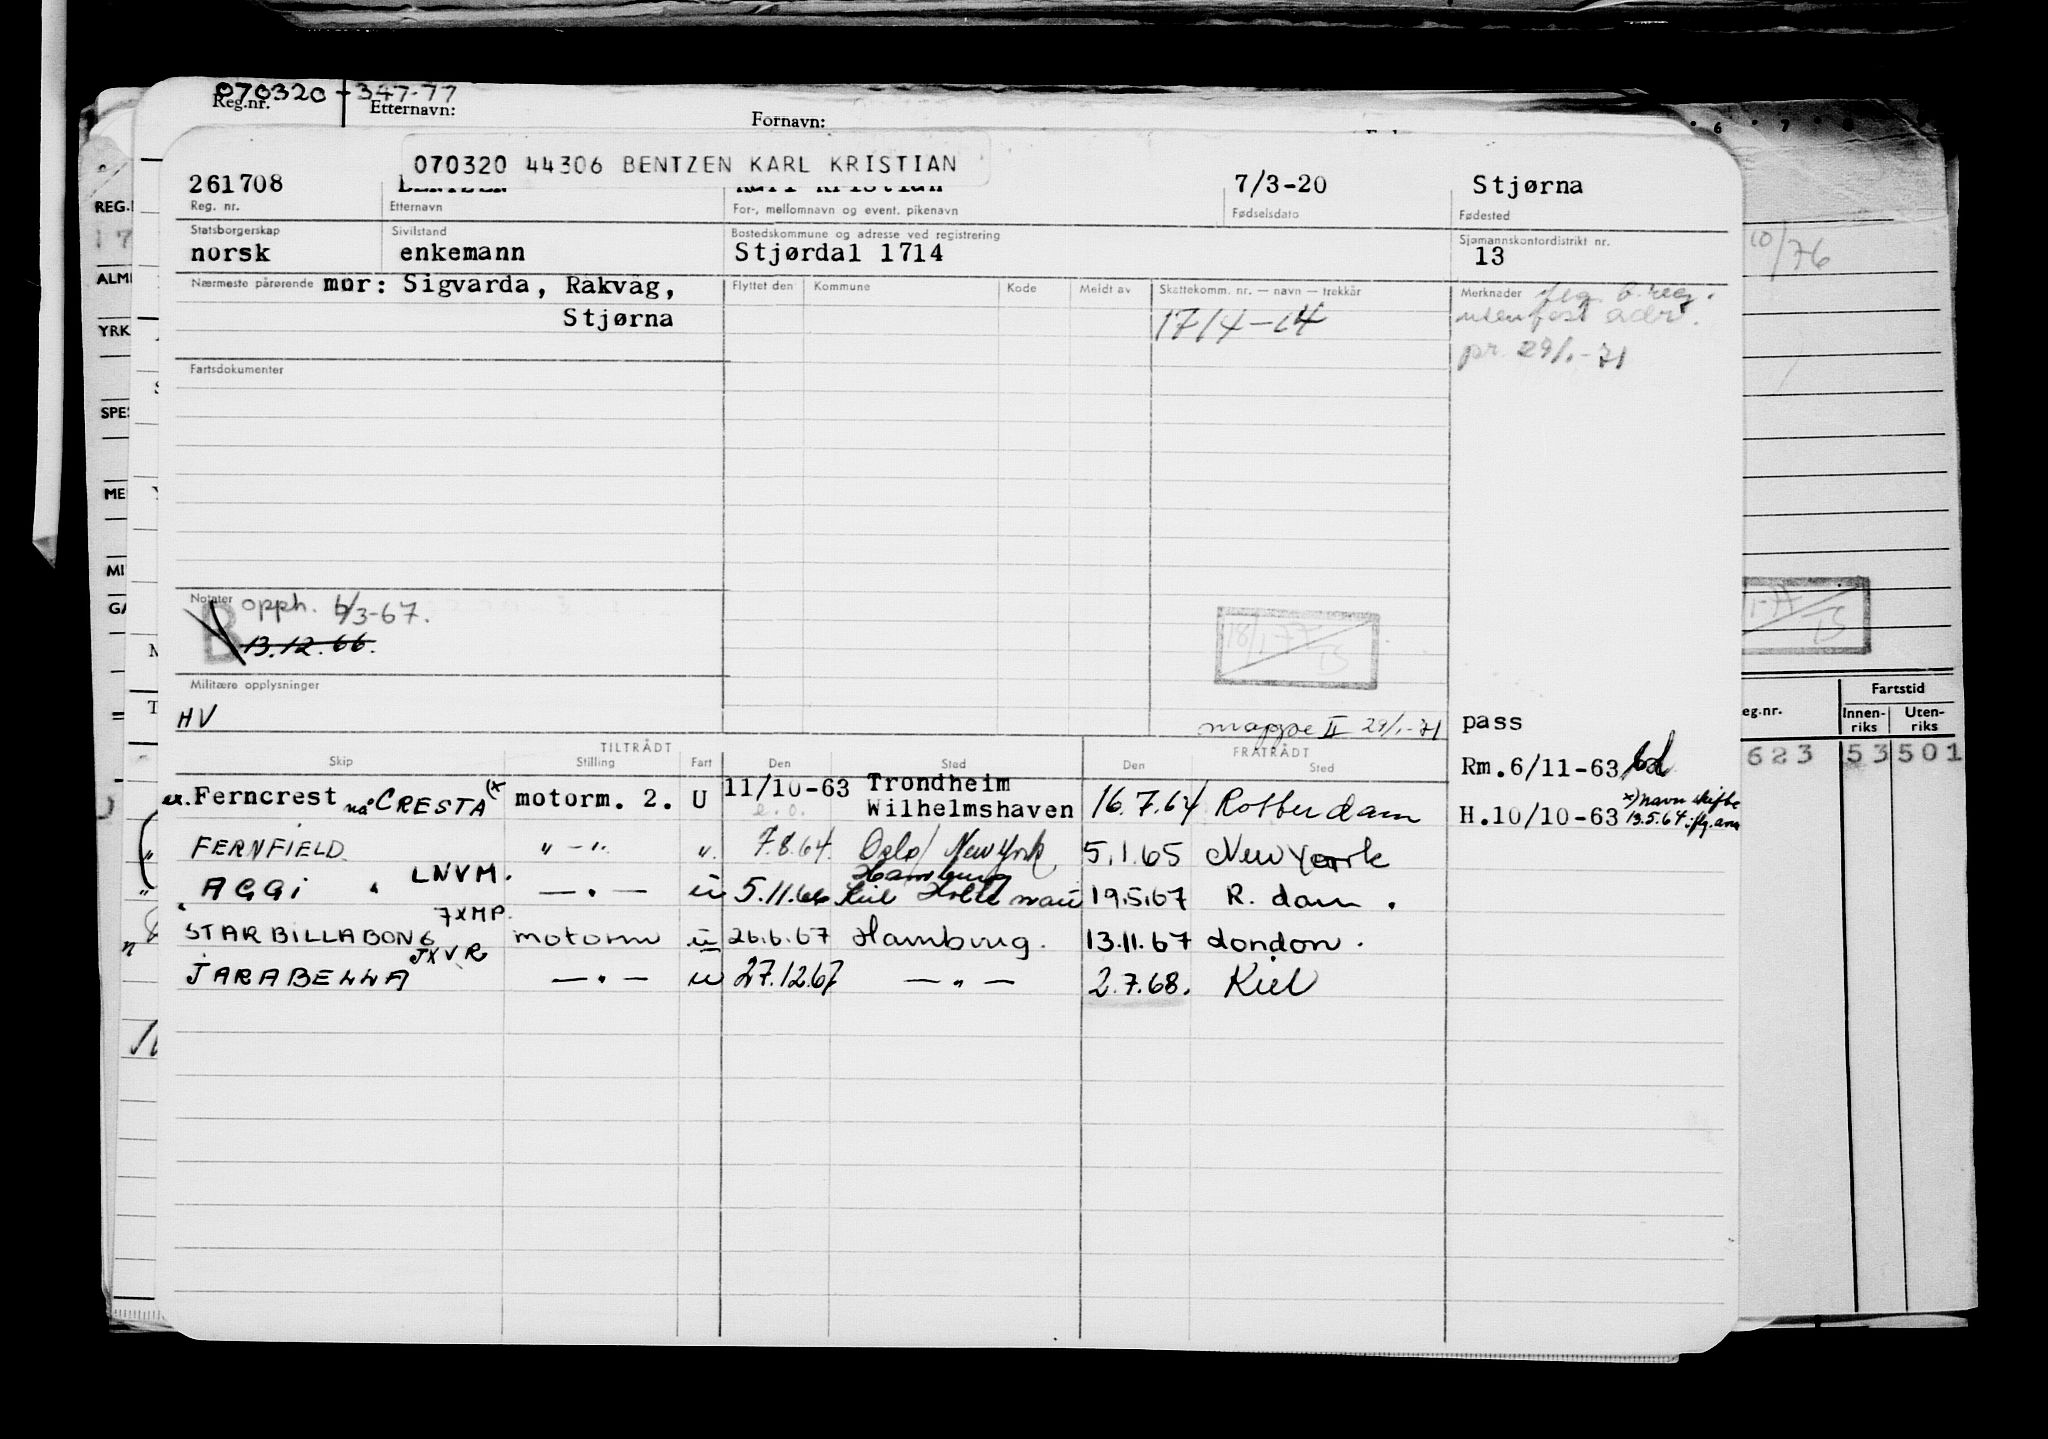 070320 - 347-77
Reg.nr. Etternavn: Fornavn:
070320 44306 BENTZEN KARL KRISTIAN
261708 BENTZEN Karl Kristian 7/3-20 Stjørna
Reg. nr. Etternavn For-, mellomnavn og event. pikenavn Fødselsdato Fødested
Statsborgerskap Sivilstand Bostedskommune og adresse ved registrering Sjømannskontordistrikt nr.
norsk enkemann Stjørdal 1714 13
Nærmeste pårørende mor: Sigvarda, Råkvåg, Flyttet den Kommune Kode Meldt av Skattekomm. nr. — navn — trekkår Merknader
Stjørna 1714-64
pr. 29/1-71
Fartsdokumenter
Notater opph. 6/3-67.
B 13.12.66.
18/1-77
Militære opplysninger
HV mappe II 29/1-71 pass
TILTRÅDT FRATRÅDT
Skip Stilling Fart Den Sted Den Sted
Rm.6/11-63
ex. Ferncrest nå CRESTA (x motorm. 2. U 11/10-63 Trondheim
Wilhelmshaven 16.7.64 Rotterdam H.10/10-63 x) Navn skifte
13.5.64
FERNFIELD " - " " 7.8.64. Oslo/ New York 5.1.65 New York
AGGI LNVM. — " — u 5.11.66 Kiel Holtenau Hamburg 19.5.67 R. dam.
STAR BILLABONG 7XMP. motorm u 26.6.67 Hamburg. 13.11.67 London.
JARABELLA JXVR — " — u 27.12.67 — " — 2.7.68. Kiel
REG.
ALM
YRK
SPE
ME
MI
GA
10/76
eg.nr. Fartstid
Innen-riks Uten-riks
623 53 501